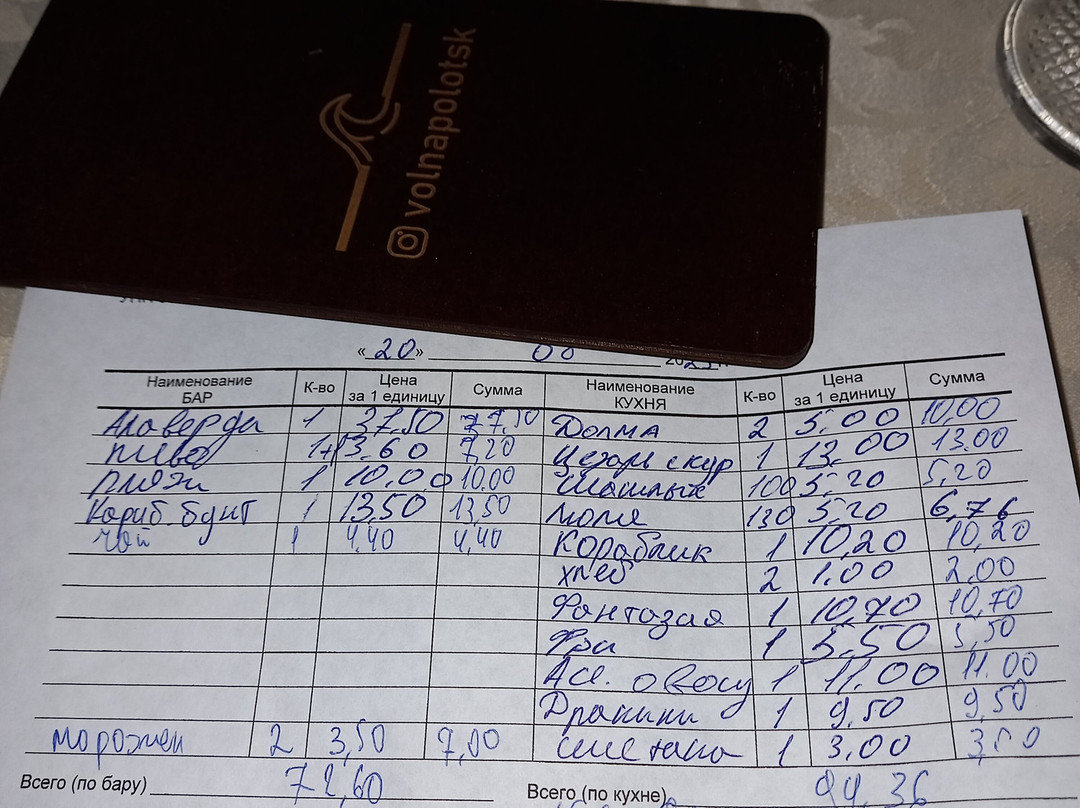 volnapolotsk
«20»
Наименование БАР К-во Цена за 1 единицу Сумма Наименование КУХНЯ К-во Цена за 1 единицу Сумма
Алаверди 1 37,50 Долма 2 5.00 10,00
пиво 1+1 3,60 7,20 Цезарь с кур 1 13,00 13.00
1 10,00 10.00 Шашлык 100 5,20 5,20
Кариб. бунт 1 13,50 13,50 130 5,20 6,76
чай 1 4,40 4,40 Кораблик 1 10,20 10,20
хлеб 2 1.00 2,00
Фантазая 1 10,70 10,70
Фри 1 5,50 5,50
Асс. овощ 1 11.00 11.00
Драники 1 9,50 9,50
морожен 2 3,50 7,00 сметана 1 3,00 3,00
Всего (по бару) 72,60 Всего (по кухне) 36